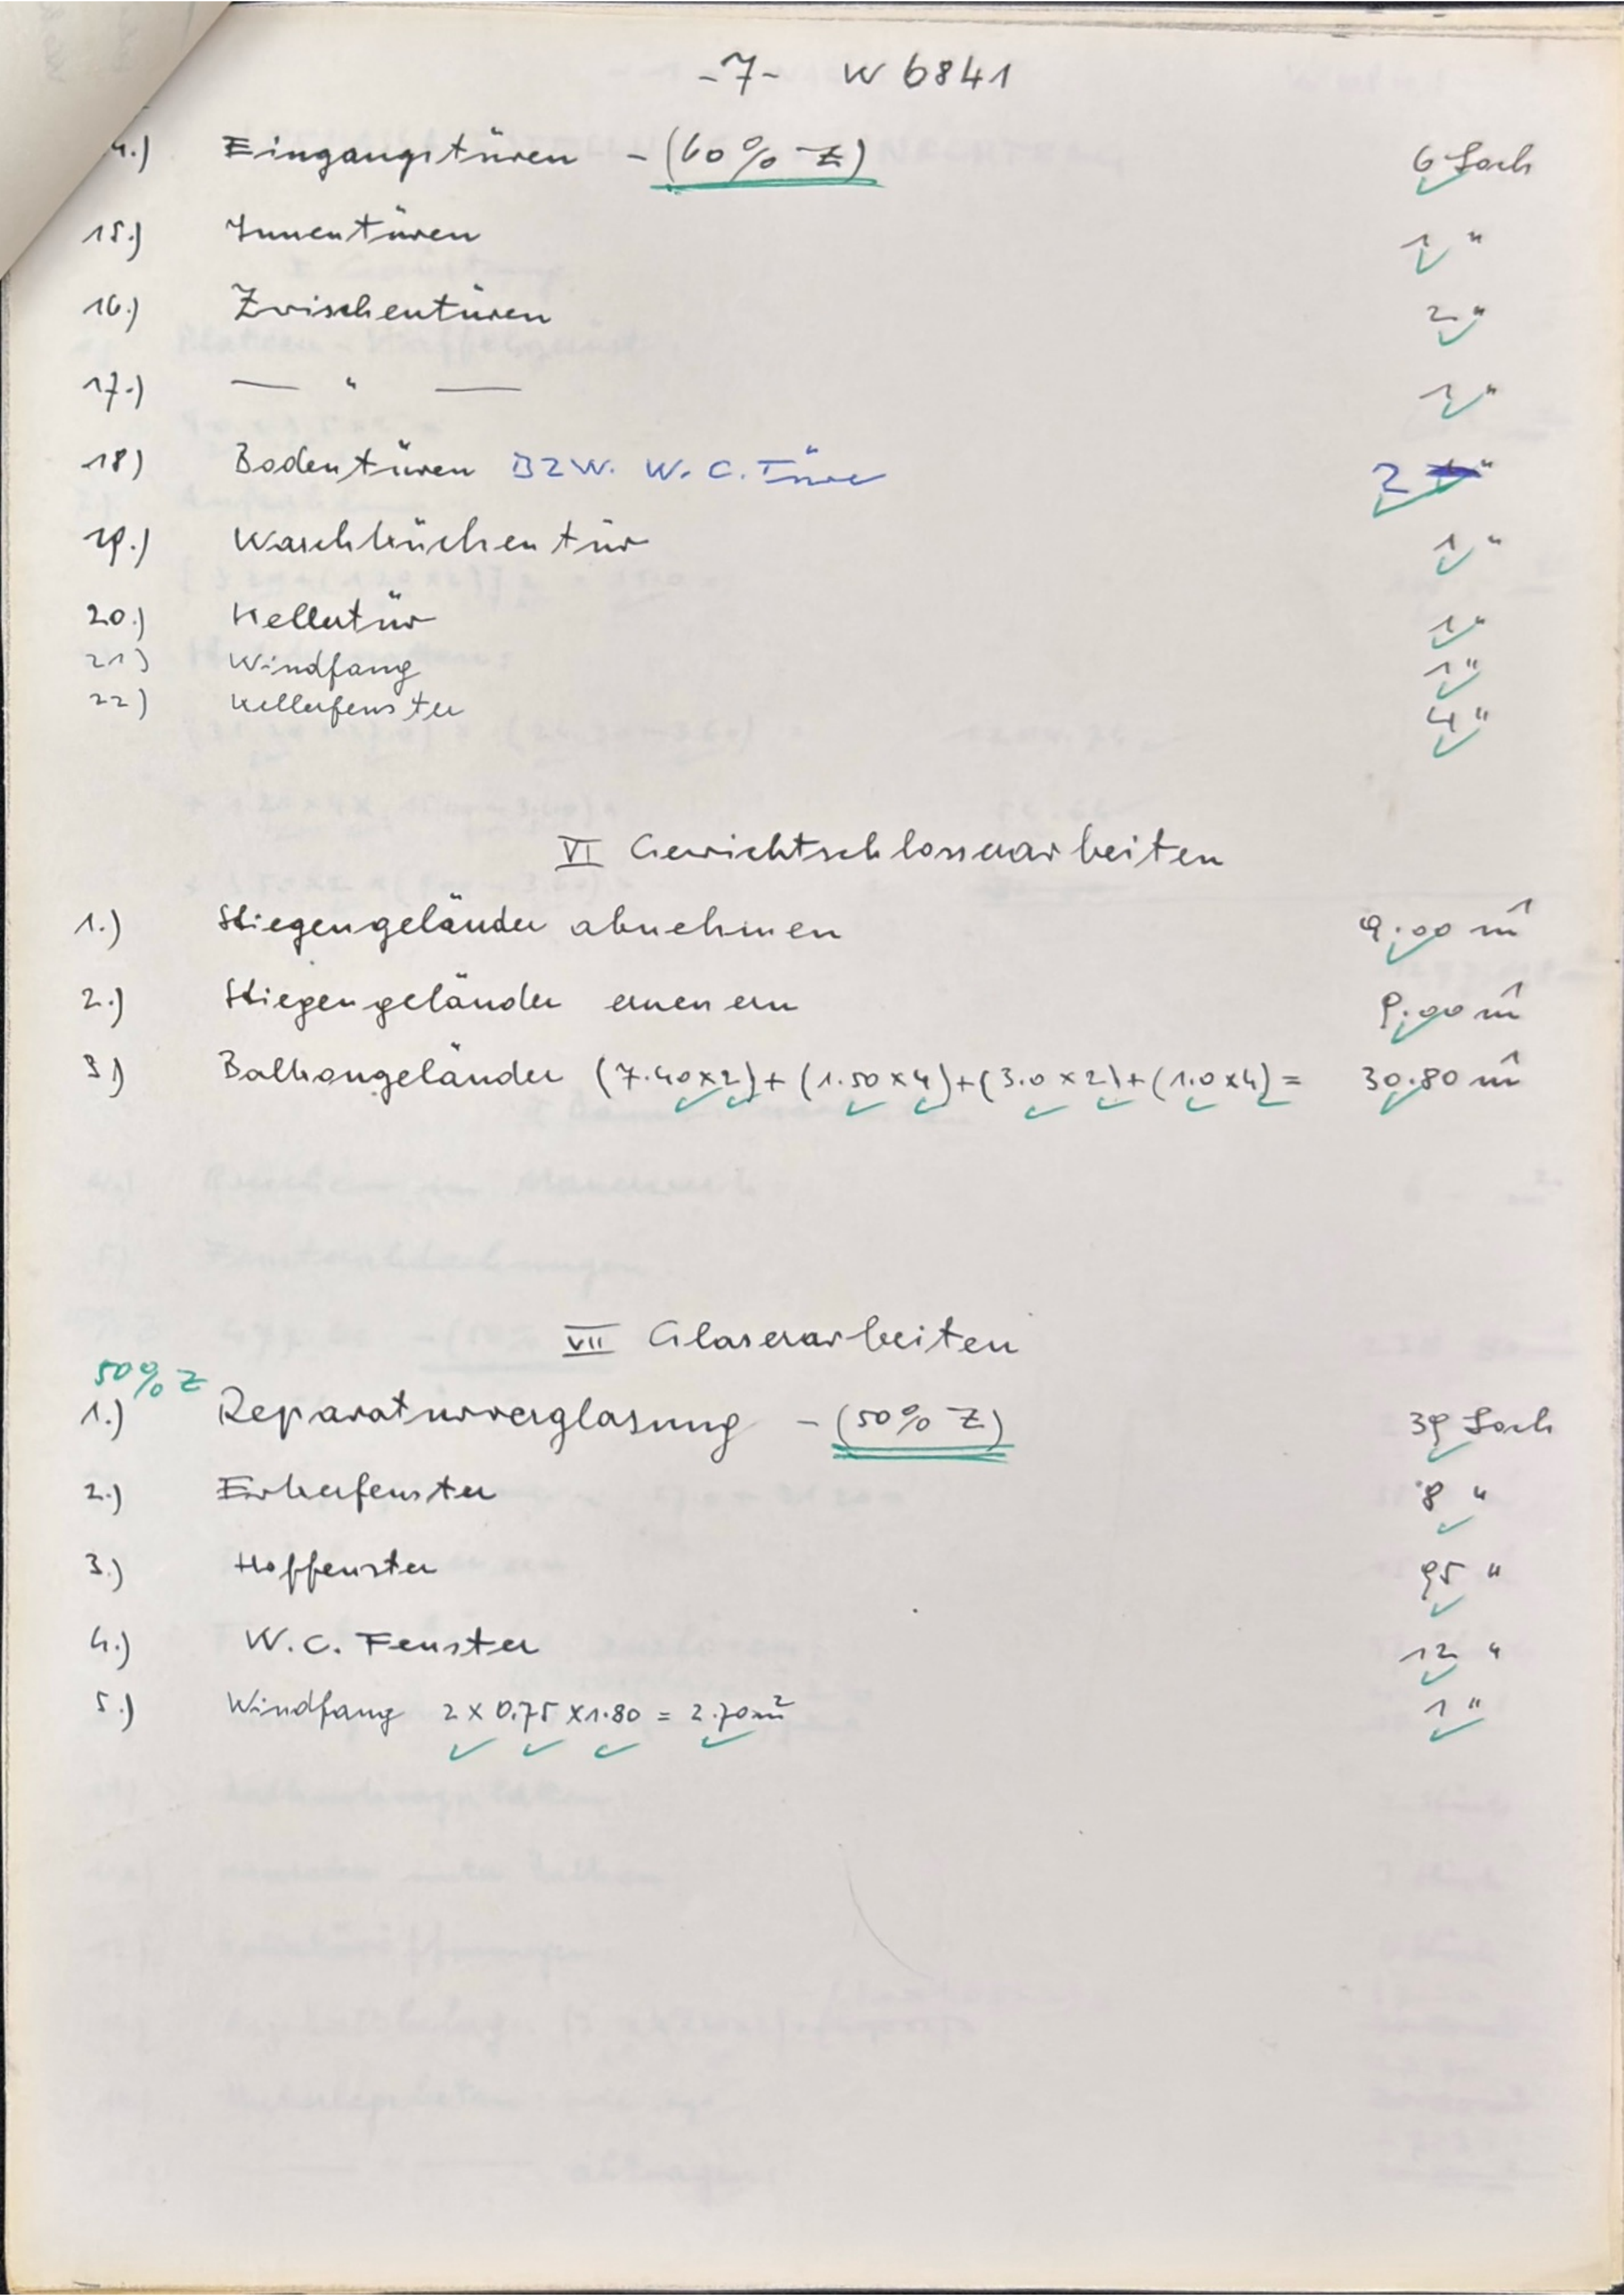 -7- W 6841
4.) Eingangstüren - (60% Z) 6 Loch
15.) Innentüren 1 "
16.) Zwischentüren 2 "
17.) — " — 1 "
18) Bodentüren BZW. W.C. Türe 2 "
19.) Waschküchentür 1 "
20.) Kellertür 1 "
21) Windfang 1 "
22) Kellerfenster 4 "
VI Gewichtschlosserarbeiten
1.) Stiegengeländer abnehmen 9.00 m¹
2.) Stiegengeländer erneuern 9.00 m¹
3.) Balkongeländer (7.40x2)+(1.50x4)+(3.0x2)+(1.0x4)= 30.80 m¹
VII Glaserarbeiten
50% Z
1.) Reparaturverglasung - (50% Z) 39 Loch
2.) Erkerfenster 8 "
3.) Hoffenster 95 "
4.) W.C. Fenster 12 "
5.) Windfang 2 x 0.75 x 1.80 = 2.70m² 1 "